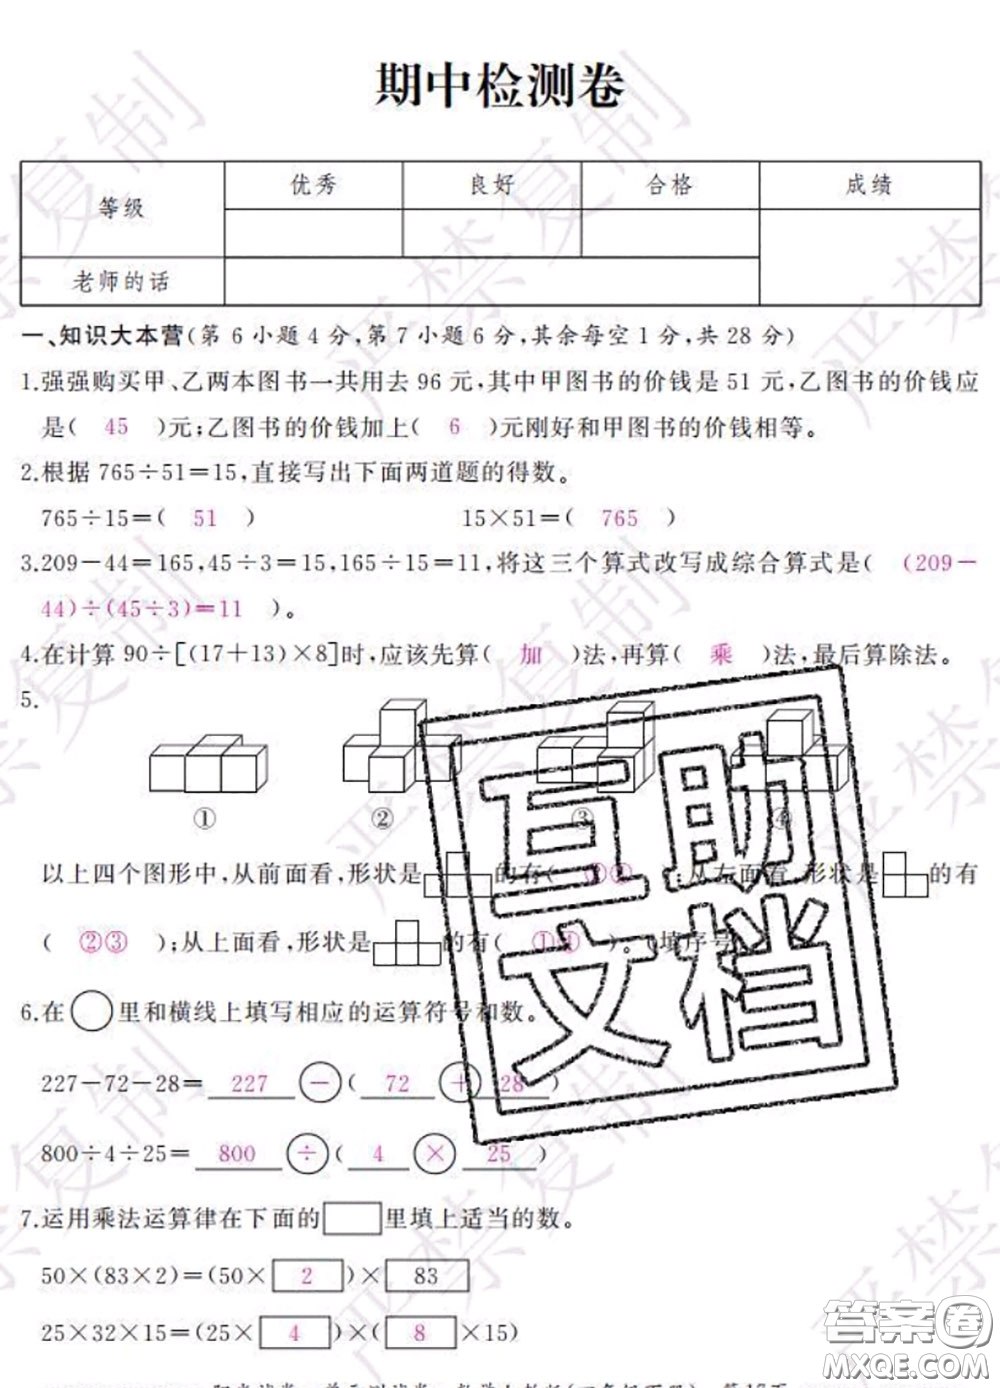 期中检测卷
等级 优秀 良好 合格 成绩
老师的话
一、知识大本营(第 6 小题 4 分,第 7 小题 6 分,其余每空 1 分,共 28 分)
1.强强购买甲、乙两本图书一共用去 96 元,其中甲图书的价钱是 51 元,乙图书的价钱应
是( 45 )元;乙图书的价钱加上( 6 )元刚好和甲图书的价钱相等。
2.根据 765÷51=15,直接写出下面两道题的得数。
765÷15=( 51 ) 15×51=( 765 )
3.209-44=165,45÷3=15,165÷15=11,将这三个算式改写成综合算式是( (209-
44)÷(45÷3)=11 )。
4.在计算 90÷[(17+13)×8]时,应该先算( 加 )法,再算( 乘 )法,最后算除法。
5.
① ② ③ ④
以上四个图形中,从前面看,形状是 的有( );从左面看,形状是 的有
( ②③ );从上面看,形状是 的有( ①④ )。(填序号)
6.在 里和横线上填写相应的运算符号和数。
227-72-28= 227 - ( 72 + 28 )
800÷4÷25= 800 ÷ ( 4 × 25 )
7.运用乘法运算律在下面的 里填上适当的数。
50×(83×2)=(50× 2 )× 83
25×32×15=(25× 4 )×( 8 ×15)
严禁复制
互助
文档
答案圈
MXQE.COM